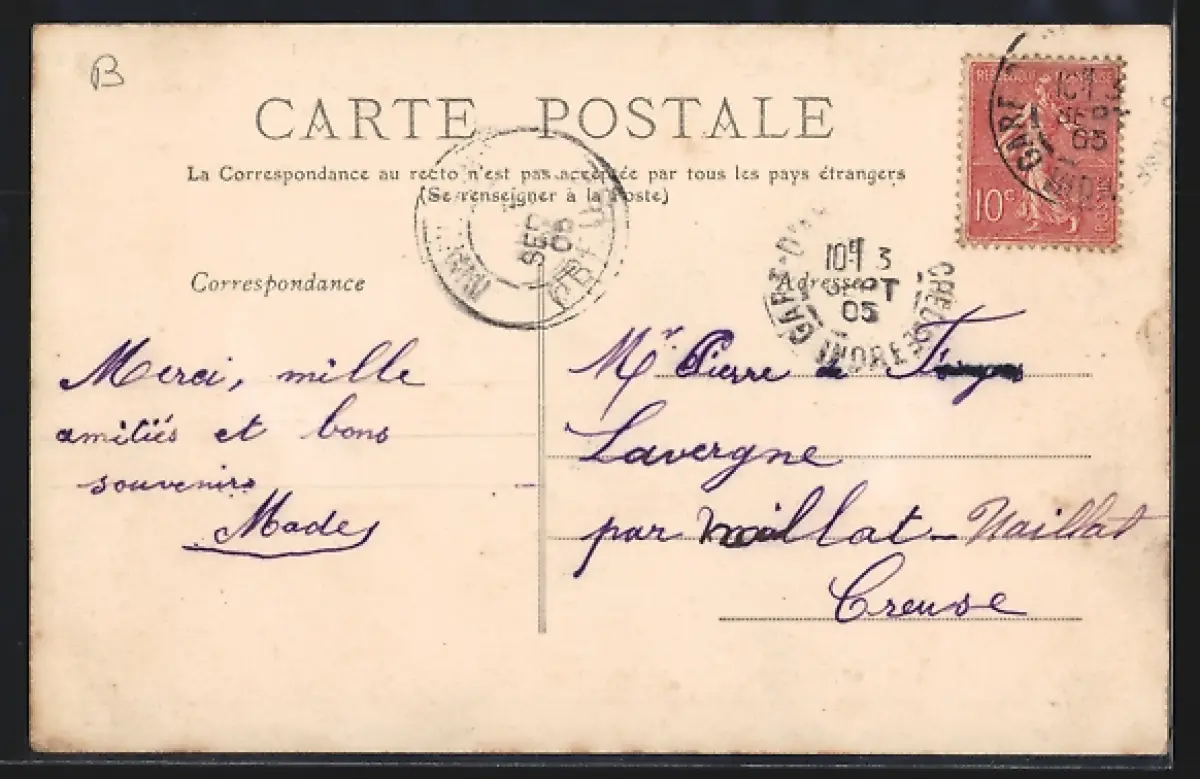 B
CARTE POSTALE
La Correspondance au recto n'est pas acceptée par tous les pays étrangers
(Se renseigner à la Poste)
RÉPUBLIQUE FRANÇAISE
10c
GARE
10 3
SEPT
05
INDRE
SEP
05
CREUSE
GARE
10 3
SEPT
05
INDRE
CREUSE
Correspondance
Adresse
Merci, mille
amitiés et bons
souvenirs
Made
Mr Pierre de
Lavergne
par Naillat - Naillat
Creuse